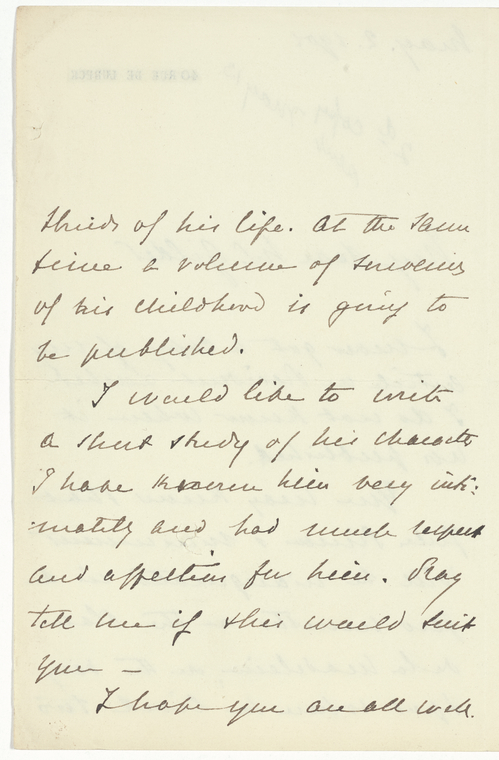 thirds of his life. At the same
time a volume of souvenirs
of his childhood is going to
be published.
I would like to write
a short study of his character
I have known him very inti-
mately and had much respect
and affection for him. Pray
tell me if this would suit
you —
I hope you are all well.